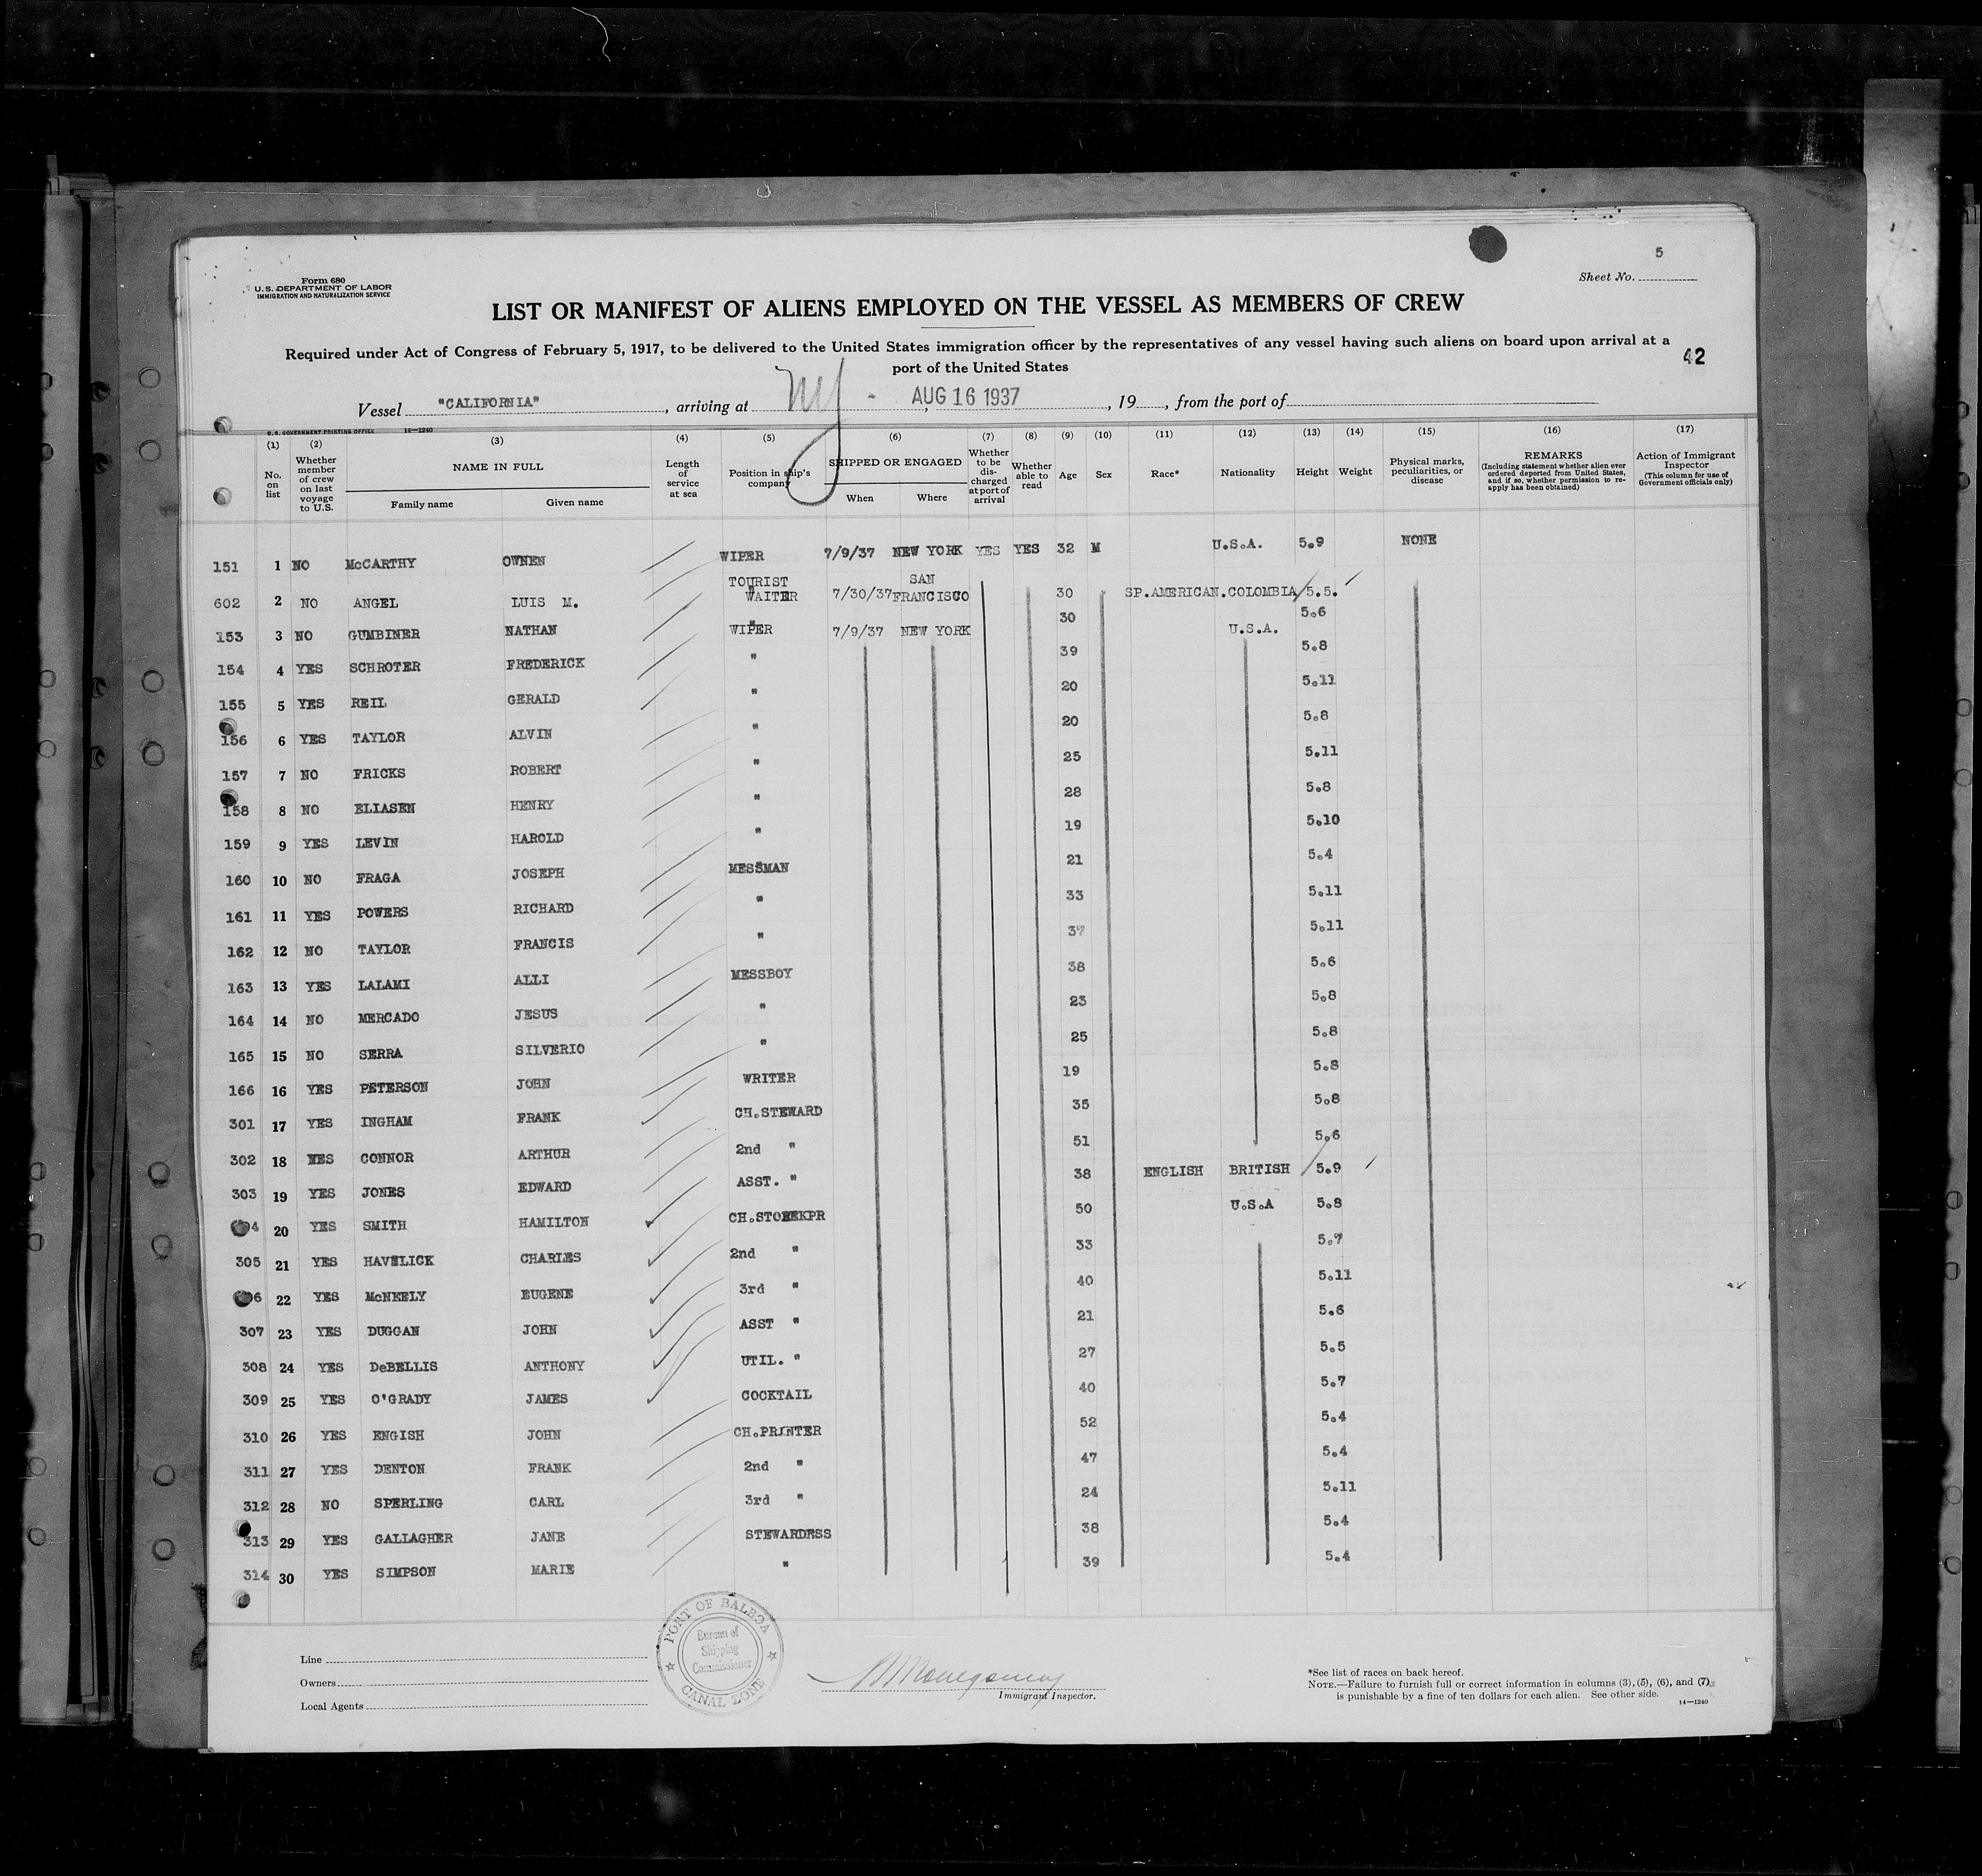 5
Sheet No.
Form 680
U. S. DEPARTMENT OF LABOR
IMMIGRATION AND NATURALIZATION SERVICE
LIST OR MANIFEST OF ALIENS EMPLOYED ON THE VESSEL AS MEMBERS OF CREW
Required under Act of Congress of February 5, 1917, to be delivered to the United States immigration officer by the representatives of any vessel having such aliens on board upon arrival at a
port of the United States
42
Vessel "CALIFORNIA", arriving at NY - , AUG 16 1937, 19, from the port of
U. S. GOVERNMENT PRINTING OFFICE 14—1240
(1) (2) (3) (4) (5) (6) (7) (8) (9) (10) (11) (12) (13) (14) (15) (16) (17)
No. on list
Whether member of crew on last voyage to U.S.
NAME IN FULL
Family name Given name
Length of service at sea
Position in ship's company
SHIPPED OR ENGAGED
When Where
Whether to be discharged at port of arrival
Whether able to read
Age
Sex
Race*
Nationality
Height
Weight
Physical marks, peculiarities, or disease
REMARKS
(Including statement whether alien ever ordered deported from United States, and if so, whether permission to reapply has been obtained)
Action of Immigrant Inspector
(This column for use of Government officials only)
151 1 NO McCARTHY OWNEN WIPER 7/9/37 NEW YORK YES YES 32 M U.S.A. 5.9 NONE
602 2 NO ANGEL LUIS M. TOURIST WAITER 7/30/37 SAN FRANCISCO " 30 SP.AMERICAN.COLOMBIA 5.5.
153 3 NO GUMBINER NATHAN WIPER " 7/9/37 NEW YORK 30 U.S.A. 5.6
154 4 YES SCHROTER FREDERICK " 39 5.8
155 5 YES REIL GERALD " 20 5.11
156 6 YES TAYLOR ALVIN " 20 5.8
157 7 NO FRICKS ROBERT " 25 5.11
158 8 NO ELIASEN HENRY " 28 5.8
159 9 YES LEVIN HAROLD " 19 5.10
160 10 NO FRAGA JOSEPH MESSMAN 21 5.4
161 11 YES POWERS RICHARD " 33 5.11
162 12 NO TAYLOR FRANCIS " 37 5.11
163 13 YES LALAMI ALLI MESSBOY 38 5.6
164 14 NO MERCADO JESUS " 23 5.8
165 15 NO SERRA SILVERIO " 25 5.8
166 16 YES PETERSON JOHN WRITER 19 5.8
301 17 YES INGHAM FRANK CH.STEWARD 35 5.8
302 18 YES CONNOR ARTHUR 2nd " 51 5.6
303 19 YES JONES EDWARD ASST. " 38 ENGLISH BRITISH 5.9
4 20 YES SMITH HAMILTON CH.STOREKPR 50 U.S.A 5.8
305 21 YES HAVELICK CHARLES 2nd " 33 5.7
6 22 YES McNEELY EUGENE 3rd " 40 5.11
307 23 YES DUGGAN JOHN ASST " 21 5.6
308 24 YES DeBELLIS ANTHONY UTIL. " 27 5.5
309 25 YES O'GRADY JAMES COCKTAIL 40 5.7
310 26 YES ENGISH JOHN CH.PRINTER 52 5.4
311 27 YES DENTON FRANK 2nd " 47 5.4
312 28 NO SPERLING CARL 3rd " 24 5.11
313 29 YES GALLAGHER JANE STEWARDESS 38 5.4
314 30 YES SIMPSON MARIE " 39 5.4
PORT OF BALBOA
Bureau of
Shipping
Commissioner
CANAL ZONE
Line
Owners
Local Agents
Montgomery
Immigrant Inspector.
*See list of races on back hereof.
NOTE.—Failure to furnish full or correct information in columns (3), (5), (6), and (7)
is punishable by a fine of ten dollars for each alien. See other side.
14—1240